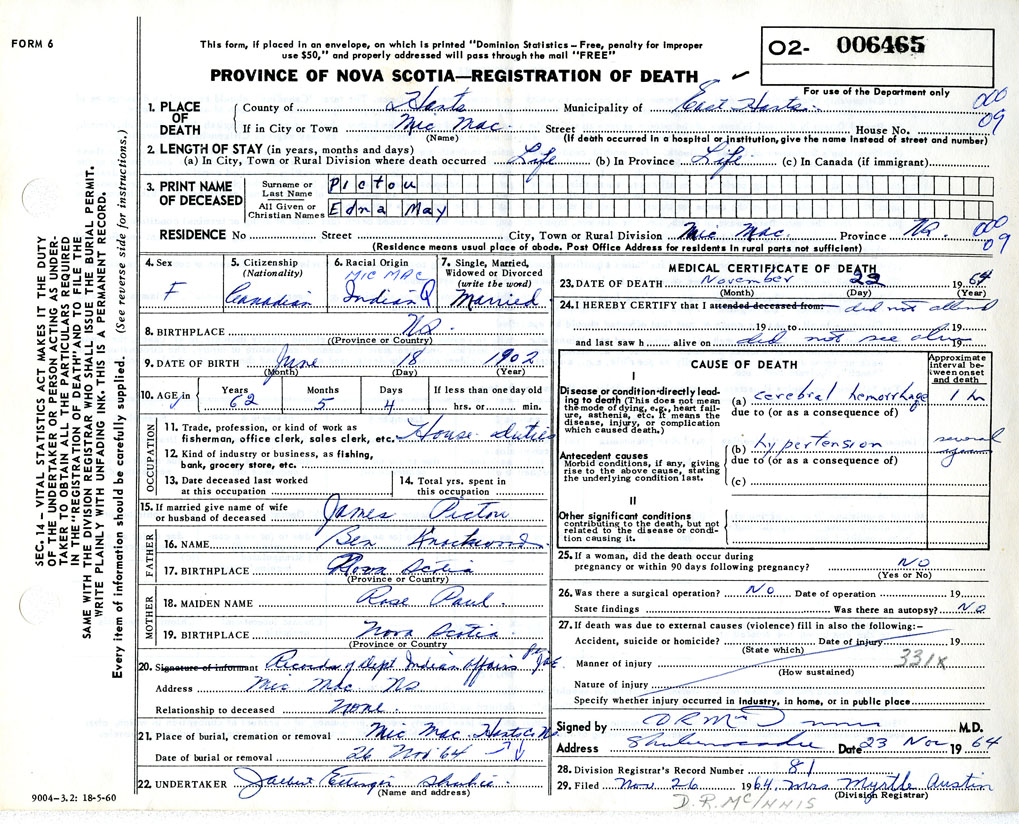 FORM 6
This form, if placed in an envelope, on which is printed "Dominion Statistics – Free, penalty for improper
use $50," and properly addressed will pass through the mail "FREE"
PROVINCE OF NOVA SCOTIA—REGISTRATION OF DEATH
02- 006465
For use of the Department only
000
09
1. PLACE OF DEATH
County of Hants Municipality of East Hants.
If in City or Town Mic Mac. Street House No.
(Name) (If death occurred in a hospital or institution, give the name instead of street and number)
2. LENGTH OF STAY (in years, months and days)
(a) In City, Town or Rural Division where death occurred Life (b) In Province Life. (c) In Canada (if immigrant)
3. PRINT NAME OF DECEASED
Surname or Last Name Pictou
All Given or Christian Names Edna May
RESIDENCE No Street City, Town or Rural Division Mic Mac. Province NS. 000
09
(Residence means usual place of abode. Post Office Address for residents in rural parts not sufficient)
4. Sex
F
5. Citizenship
(Nationality)
Canadian
6. Racial Origin
MIC MAC
Indian
7. Single, Married, Widowed or Divorced
(write the word)
Married
8. BIRTHPLACE NS.
(Province or Country)
9. DATE OF BIRTH June 18 1902
(Month) (Day) (Year)
10. AGE in
Years 62
Months 5
Days 4
If less than one day old
hrs. or min.
OCCUPATION
11. Trade, profession, or kind of work as
fisherman, office clerk, sales clerk, etc. House duties
12. Kind of industry or business, as fishing,
bank, grocery store, etc.
13. Date deceased last worked
at this occupation
14. Total yrs. spent in
this occupation
15. If married give name of wife
or husband of deceased James Pictou
FATHER
16. NAME Ben Knockwood
17. BIRTHPLACE Nova Scotia
(Province or Country)
MOTHER
18. MAIDEN NAME Rose Paul.
19. BIRTHPLACE Nova Scotia.
(Province or Country)
20. Signature of informant Records of Dept Indian Affairs
Address Mic Mac NS
Relationship to deceased None.
21. Place of burial, cremation or removal Mic Mac. Hants Co. NS
Date of burial or removal 26 Nov '64
22. UNDERTAKER Shubie.
(Name and address)
MEDICAL CERTIFICATE OF DEATH
23. DATE OF DEATH November 22 1964
(Month) (Day) (Year)
24. I HEREBY CERTIFY that I attended deceased from: did not attend
19 to 19
and last saw h alive on did not see alive 19
CAUSE OF DEATH
Approximate interval between onset and death
I
Disease or condition directly leading to death (This does not mean the mode of dying, e.g., heart failure, asthenia, etc. It means the disease, injury, or complication which caused death.)
(a) cerebral hemorrhage 1 hr
due to (or as a consequence of)
Antecedent causes
Morbid conditions, if any, giving rise to the above cause, stating the underlying condition last.
(b) hypertension several years
due to (or as a consequence of)
(c)
II
Other significant conditions
contributing to the death, but not related to the disease or condition causing it.
25. If a woman, did the death occur during
pregnancy or within 90 days following pregnancy? NO
(Yes or No)
26. Was there a surgical operation? NO Date of operation 19
State findings Was there an autopsy? NO
27. If death was due to external causes (violence) fill in also the following:-
Accident, suicide or homicide? Date of injury 19
(State which)
331X
Manner of injury
(How sustained)
Nature of injury
Specify whether injury occurred in industry, in home, or in public place
Signed by M.D.
Address Shubenacadie Date 23 Nov 1964
28. Division Registrar's Record Number 81
29. Filed Nov. 26 1964 Mrs Myrtle Austin
(Division Registrar)
D.R. McINNIS
SEC. 14 – VITAL STATISTICS ACT MAKES IT THE DUTY
OF THE UNDERTAKER OR PERSON ACTING AS UNDERTAKER TO OBTAIN ALL THE PARTICULARS REQUIRED
IN THE "REGISTRATION OF DEATH" AND TO FILE THE
SAME WITH THE DIVISION REGISTRAR WHO SHALL ISSUE THE BURIAL PERMIT.
WRITE PLAINLY WITH UNFADING INK. THIS IS A PERMANENT RECORD.
Every item of information should be carefully supplied. (See reverse side for instructions.)
9004–3.2: 18-5-60